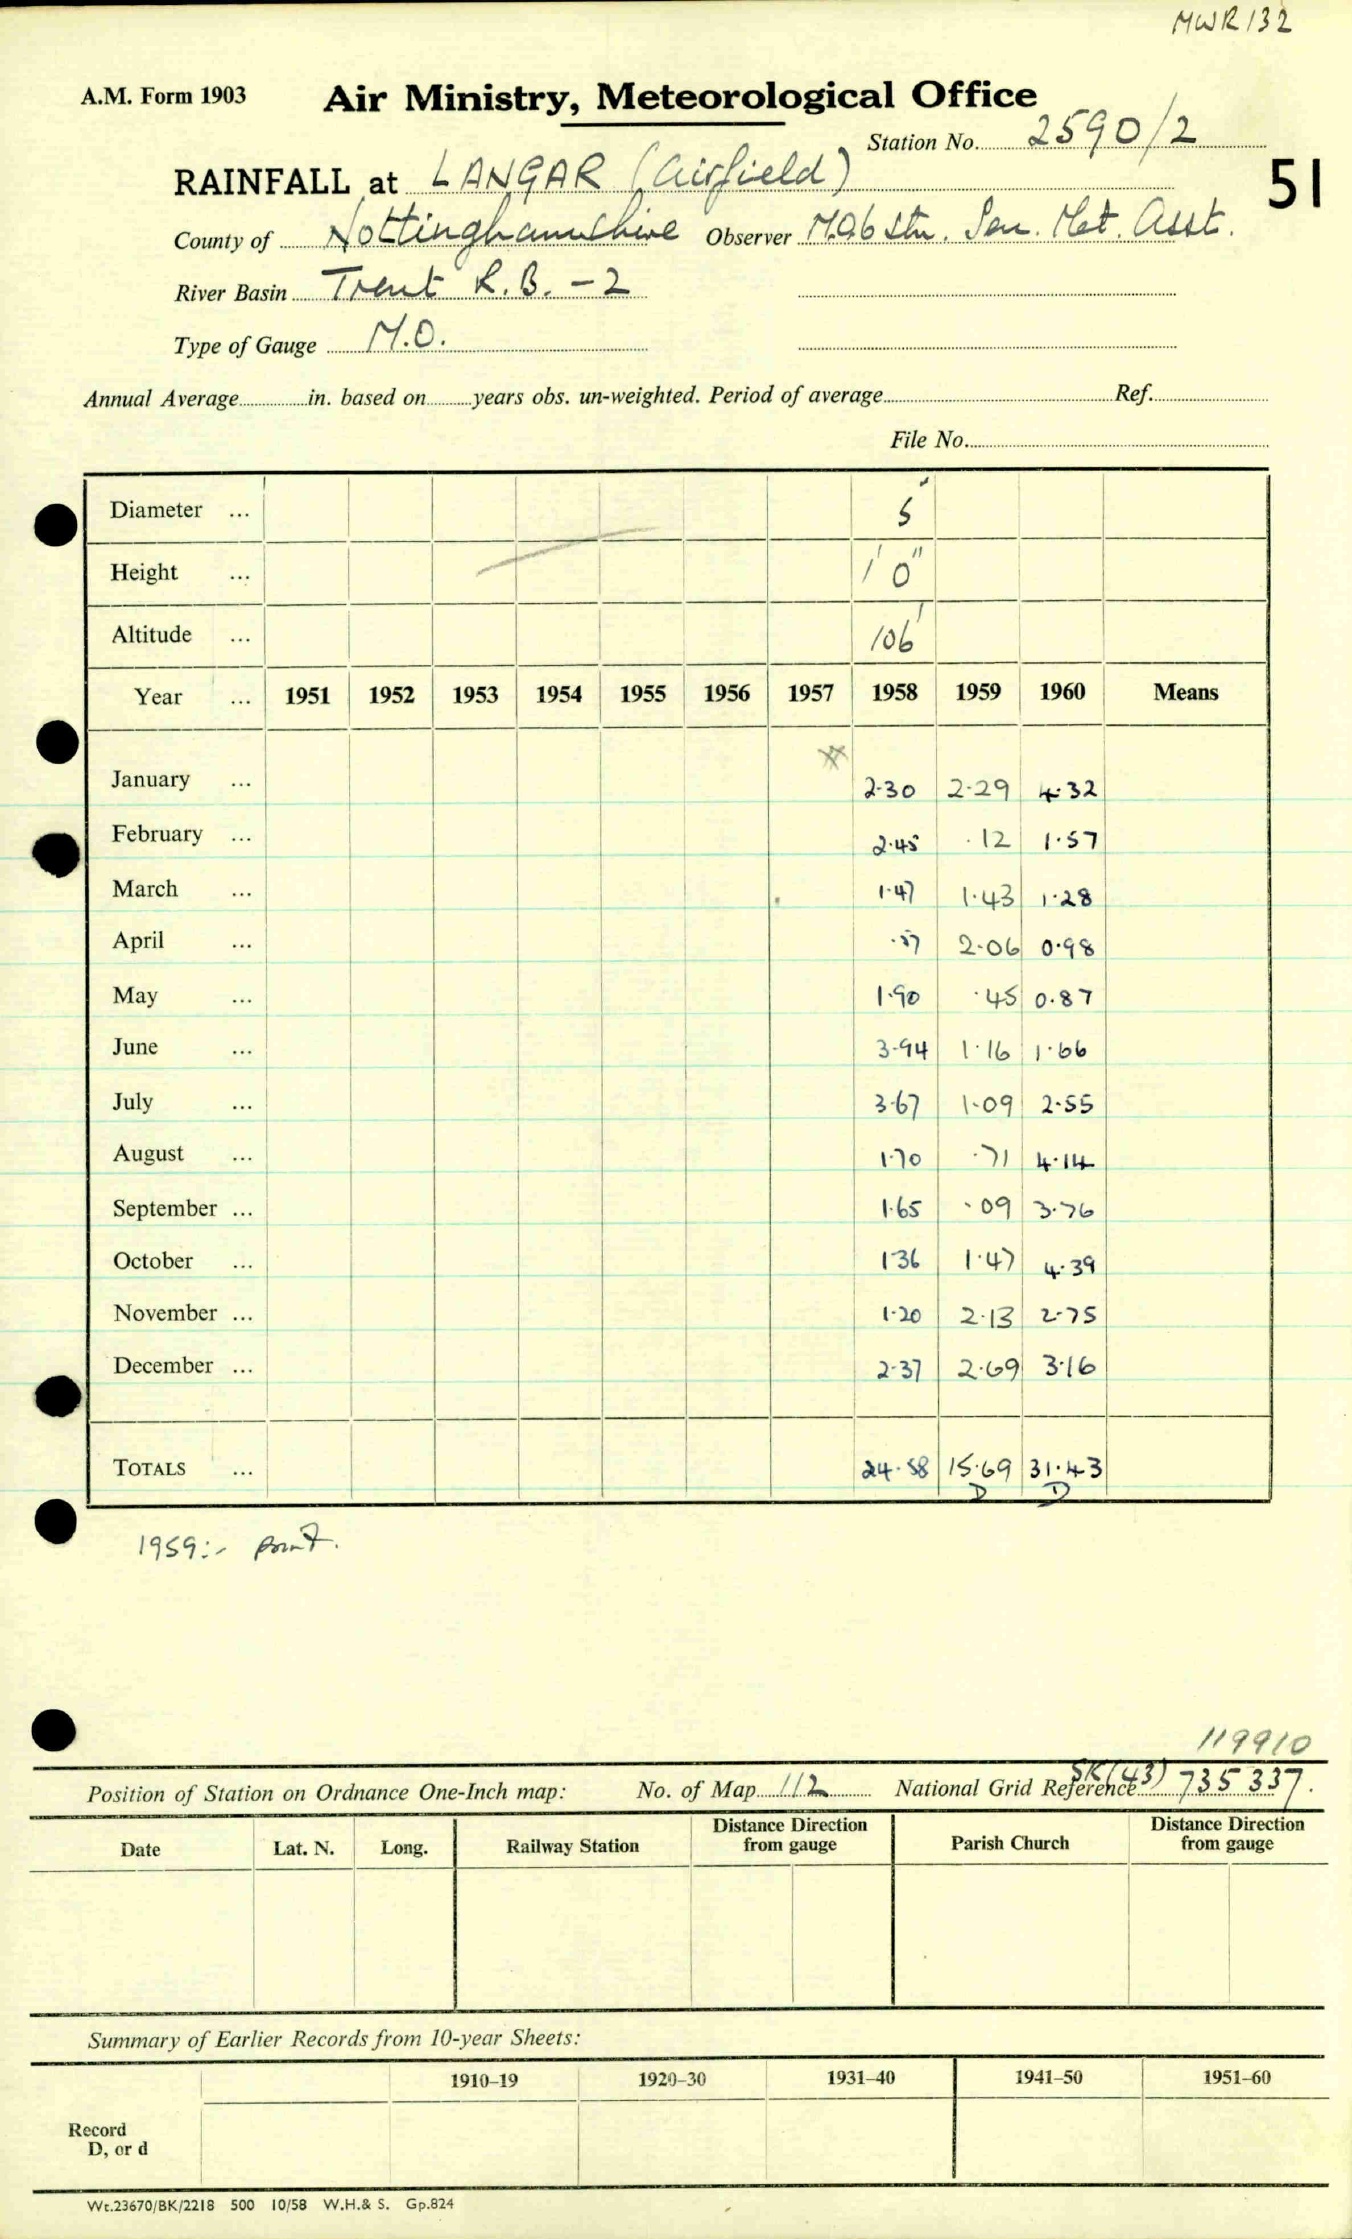 MWR132
A.M. Form 1903 Air Ministry, Meteorological Office
Station No. 2590/2
51
RAINFALL at LANGAR (Airfield)
County of Nottinghamshire Observer Sen. Met. Asst.
River Basin Trent R.B. -2
Type of Gauge M.O.
Annual Average in. based on years obs. un-weighted. Period of average Ref.
File No.
Diameter ... 5"
Height ... 1' 0"
Altitude ... 106'
Year ... 1951 1952 1953 1954 1955 1956 1957 1958 1959 1960 Means
January ... 2·30 2·29 4·32
February ... 2·45 ·12 1·57
March ... 1·47 1·43 1·28
April ... ·57 2·06 0·98
May ... 1·90 ·45 0·87
June ... 3·94 1·16 1·66
July ... 3·67 1·09 2·55
August ... 1·70 ·71 4·14
September ... 1·65 ·09 3·76
October ... 1·36 1·47 4·39
November ... 1·20 2·13 2·75
December ... 2·37 2·69 3·16
TOTALS ... 24·58 15·69 31·43
D D
1959:-
119910
Position of Station on Ordnance One-Inch map: No. of Map 112 National Grid Reference SK(43) 735 337.
Date Lat. N. Long. Railway Station Distance Direction from gauge Parish Church Distance Direction from gauge
Summary of Earlier Records from 10-year Sheets:
1910–19 1920–30 1931–40 1941–50 1951–60
Record
D, or d
Wt.23670/BK/2218 500 10/58 W.H.& S. Gp.824